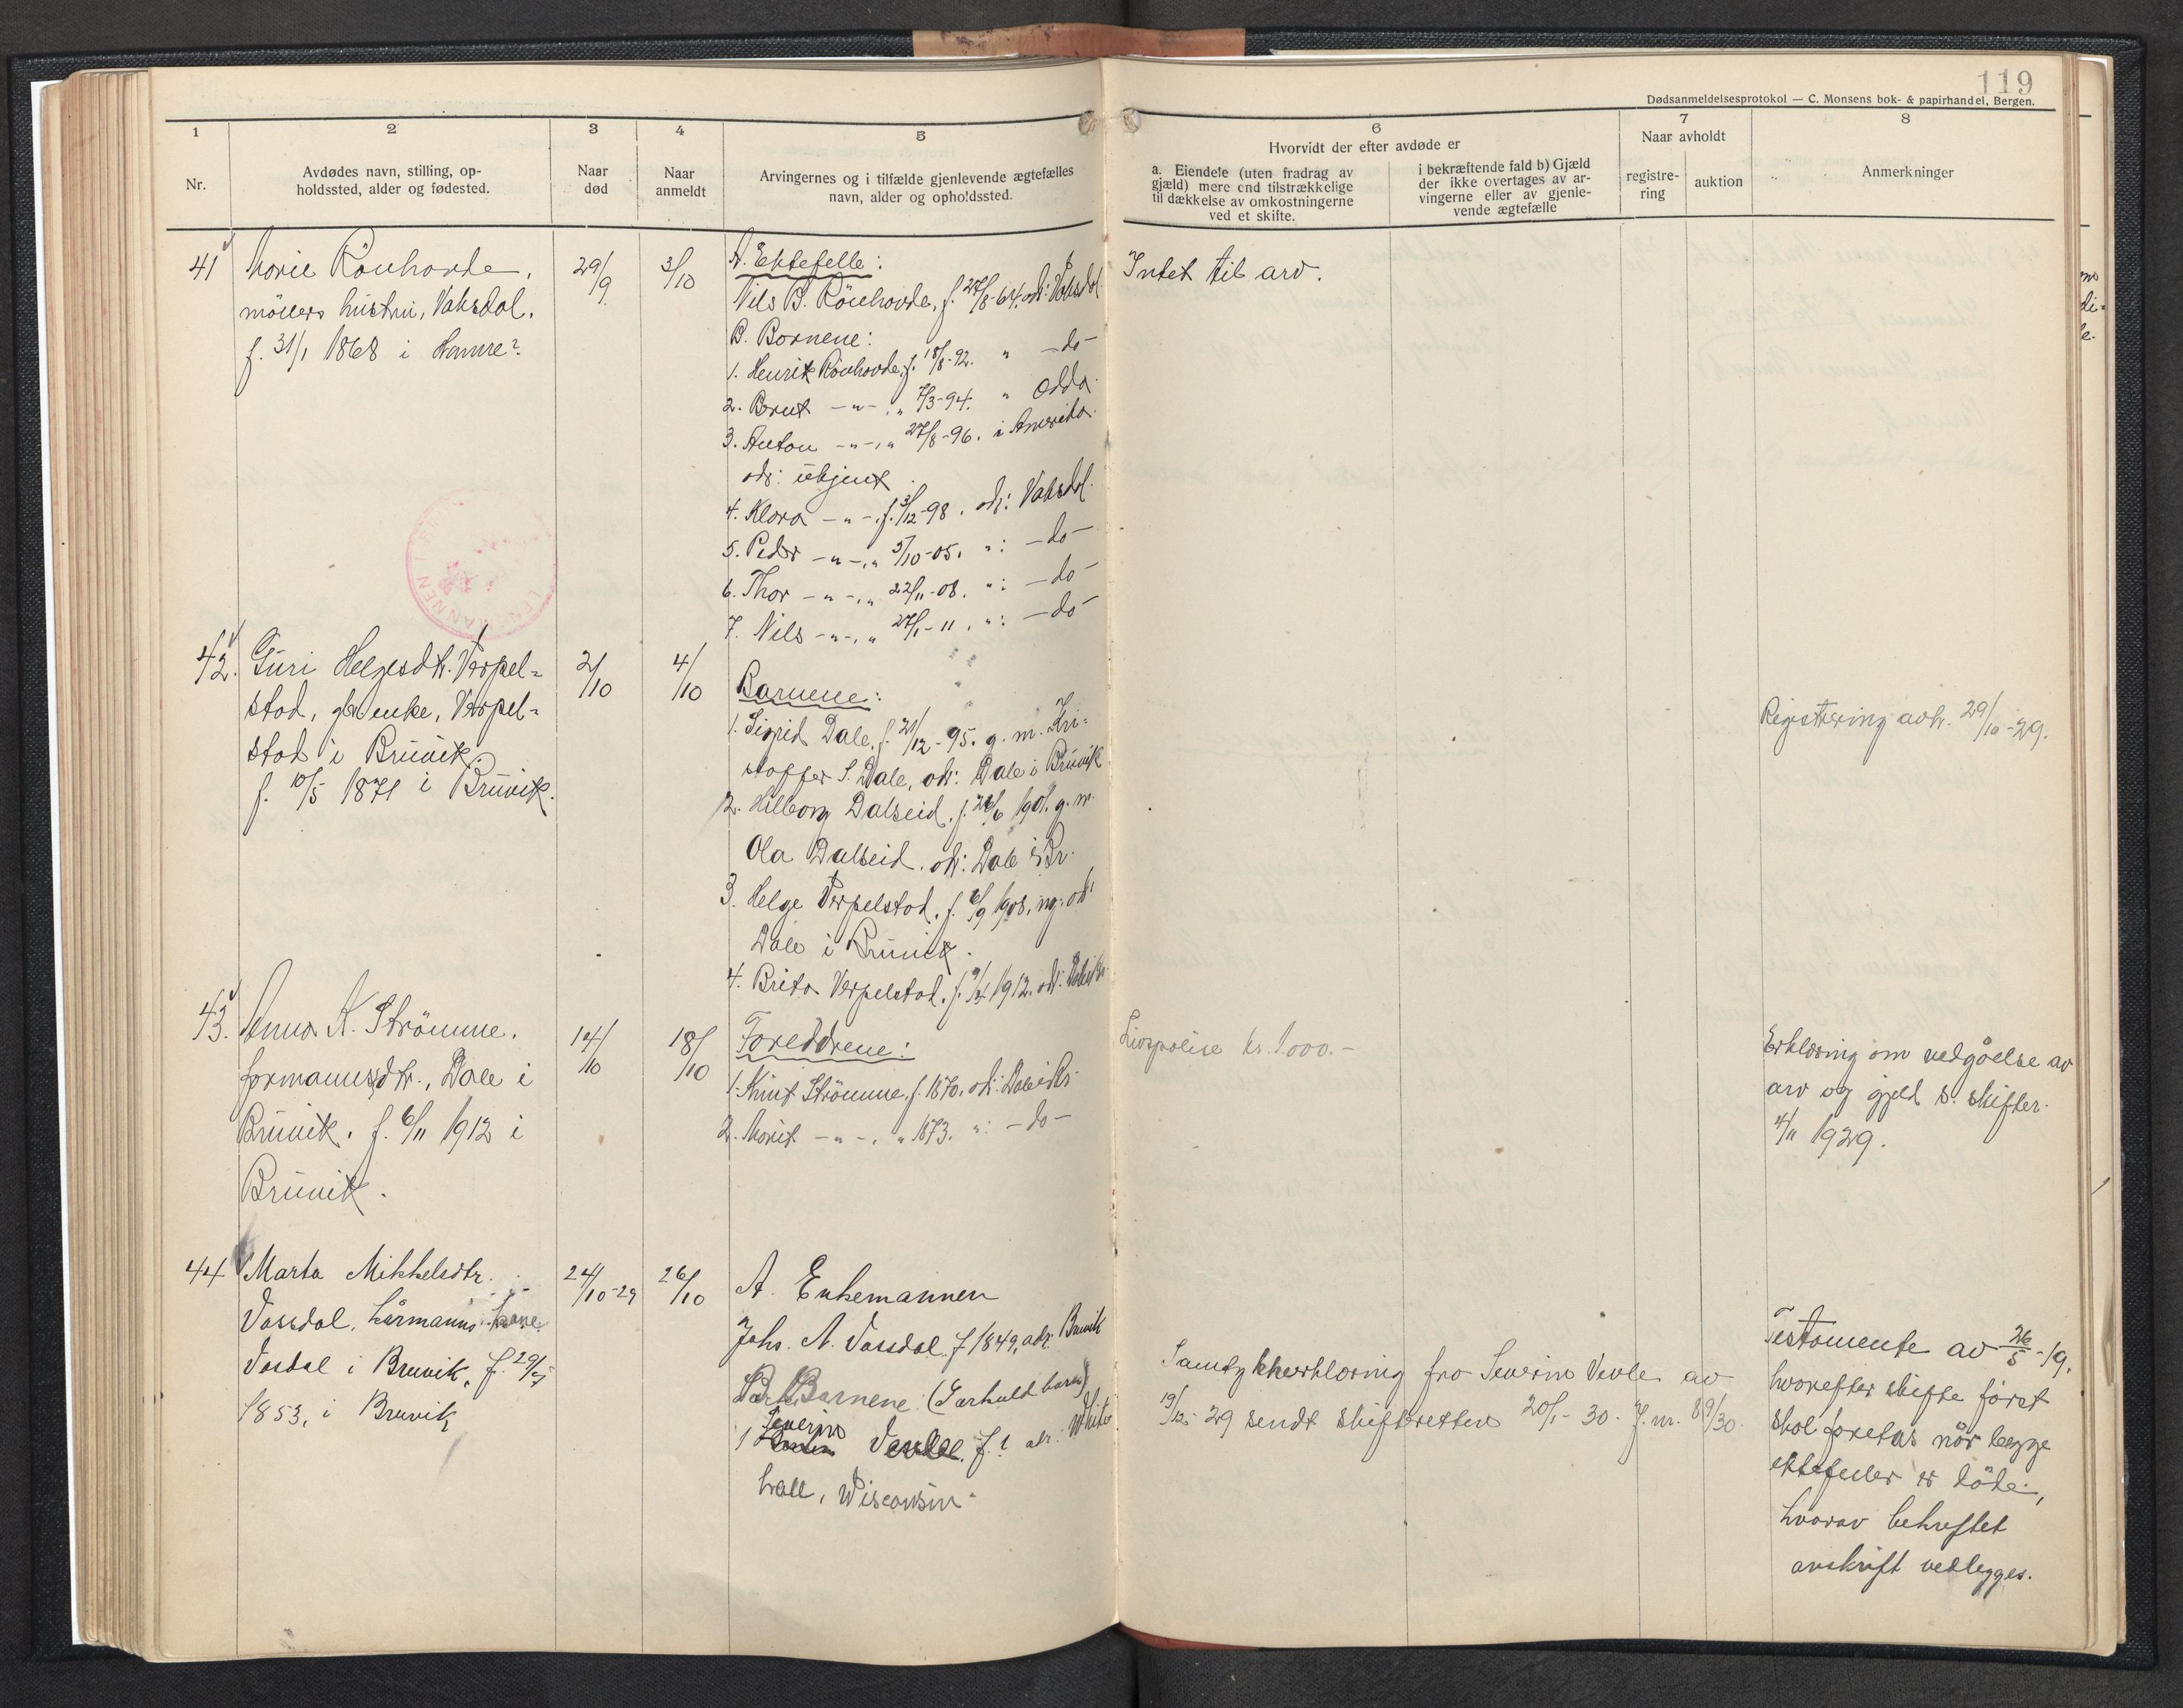 119
Dødsanmeldelsesprotokol — C. Monsens bok- & papirhandel, Bergen.
1
2
3
4
5
6
7
8
Nr.
Avdødes navn, stilling, op-
holdssted, alder og fødested.
Naar
død
Naar
anmeldt
Arvingernes og i tilfælde gjenlevende ægtefælles
navn, alder og opholdssted.
Hvorvidt der efter avdøde er
a. Eiendele (uten fradrag av
gjæld) mere end tilstrækkelige
til dækkelse av omkostningerne
ved et skifte.
i bekræftende fald b) Gjæld
der ikke overtages av ar-
vingerne eller av gjenle-
vende ægtefælle
Naar avholdt
registre-
ring
auktion
Anmerkninger
41
Marie Rönhovde,
möllers hustru, Vaksdal.
f. 31/1 1868 i Hamre?
29/9
3/10
A. Ektefelle:
Nils B. Rönhovde, f. 27/8-64. adr: Vaksdal.
B. Barnene:
1. Henrik Rönhovde, f. 18/8-92. " -do-
2. Bernt -"-, " 7/3-94. " Odda.
3. Anton -"-, " 27/8-96. i Amerika.
adr: ukjent.
4. Klara -"-, f. 3/12-98. adr: Vaksdal.
5. Peder -"-, " 5/10-05. ": -do-
6. Thor -"-, " 22/11-08. ": -do-
7. Nils -"-, " 27/1-11. ": -do-
Intet til arv.
42.
Guri Helgesdtr. Verpel=
stad, gbr. enke, Verpel=
stad i Bruvik.
f. 10/5 1871 i Bruvik.
2/10
4/10
Barnene:
1. Sigrid Dale, f. 21/12-95. g. m. Kri=
stoffer S. Dale, adr: Dale i Bruvik
2. Hilborg Dalseid. f. 26/6 1901. g. m.
Ola Dalseid. adr: Dale i Br.
3. Helge Verpelstad. f. 6/9 1908. ug. adr
Dale i Bruvik.
4. Brita Verpelstad. f. 9/4 1912. adr: Dale i Br.
Registrering avh. 29/10-29.
43.
Anna K. Strömme.
formannsdtr., Dale i
Bruvik. f. 6/11 1912 i
Bruvik.
14/10
18/10
Foreldrene:
1. Knut Strömme. f. 1870. adr: Dale i Br.
2. Marit -"-. " 1873. ": -do-
Livspolise kr. 1000.-
Erklæring om vedgåelse av
arv og gjeld s. skifter.
4/11 1929.
44
Marta Mikkelsdtr.
Vassdal, kårmanns kone
Vasdal i Bruvik, f. 29/5
1853, i Bruvik
24/10-29
26/10
A. Enkemannen
Johs. A. Vassdal. f 1849, adr. Bruvik
Barnene: (Særkuld barn)
1 Severin Vevle. f. ? adr: White
hall, Wisconsin.
Samtykkeerklæring fra Severin Vevle av
19/12-29 sendt skifteretten 20/1-30. J. nr. 89/30.
Testamente av 26/5-19.
hvorefter skifte först
skal foretas når begge
ektefeller er döde,
hvorav bekreftet
avskrift vedlegges.